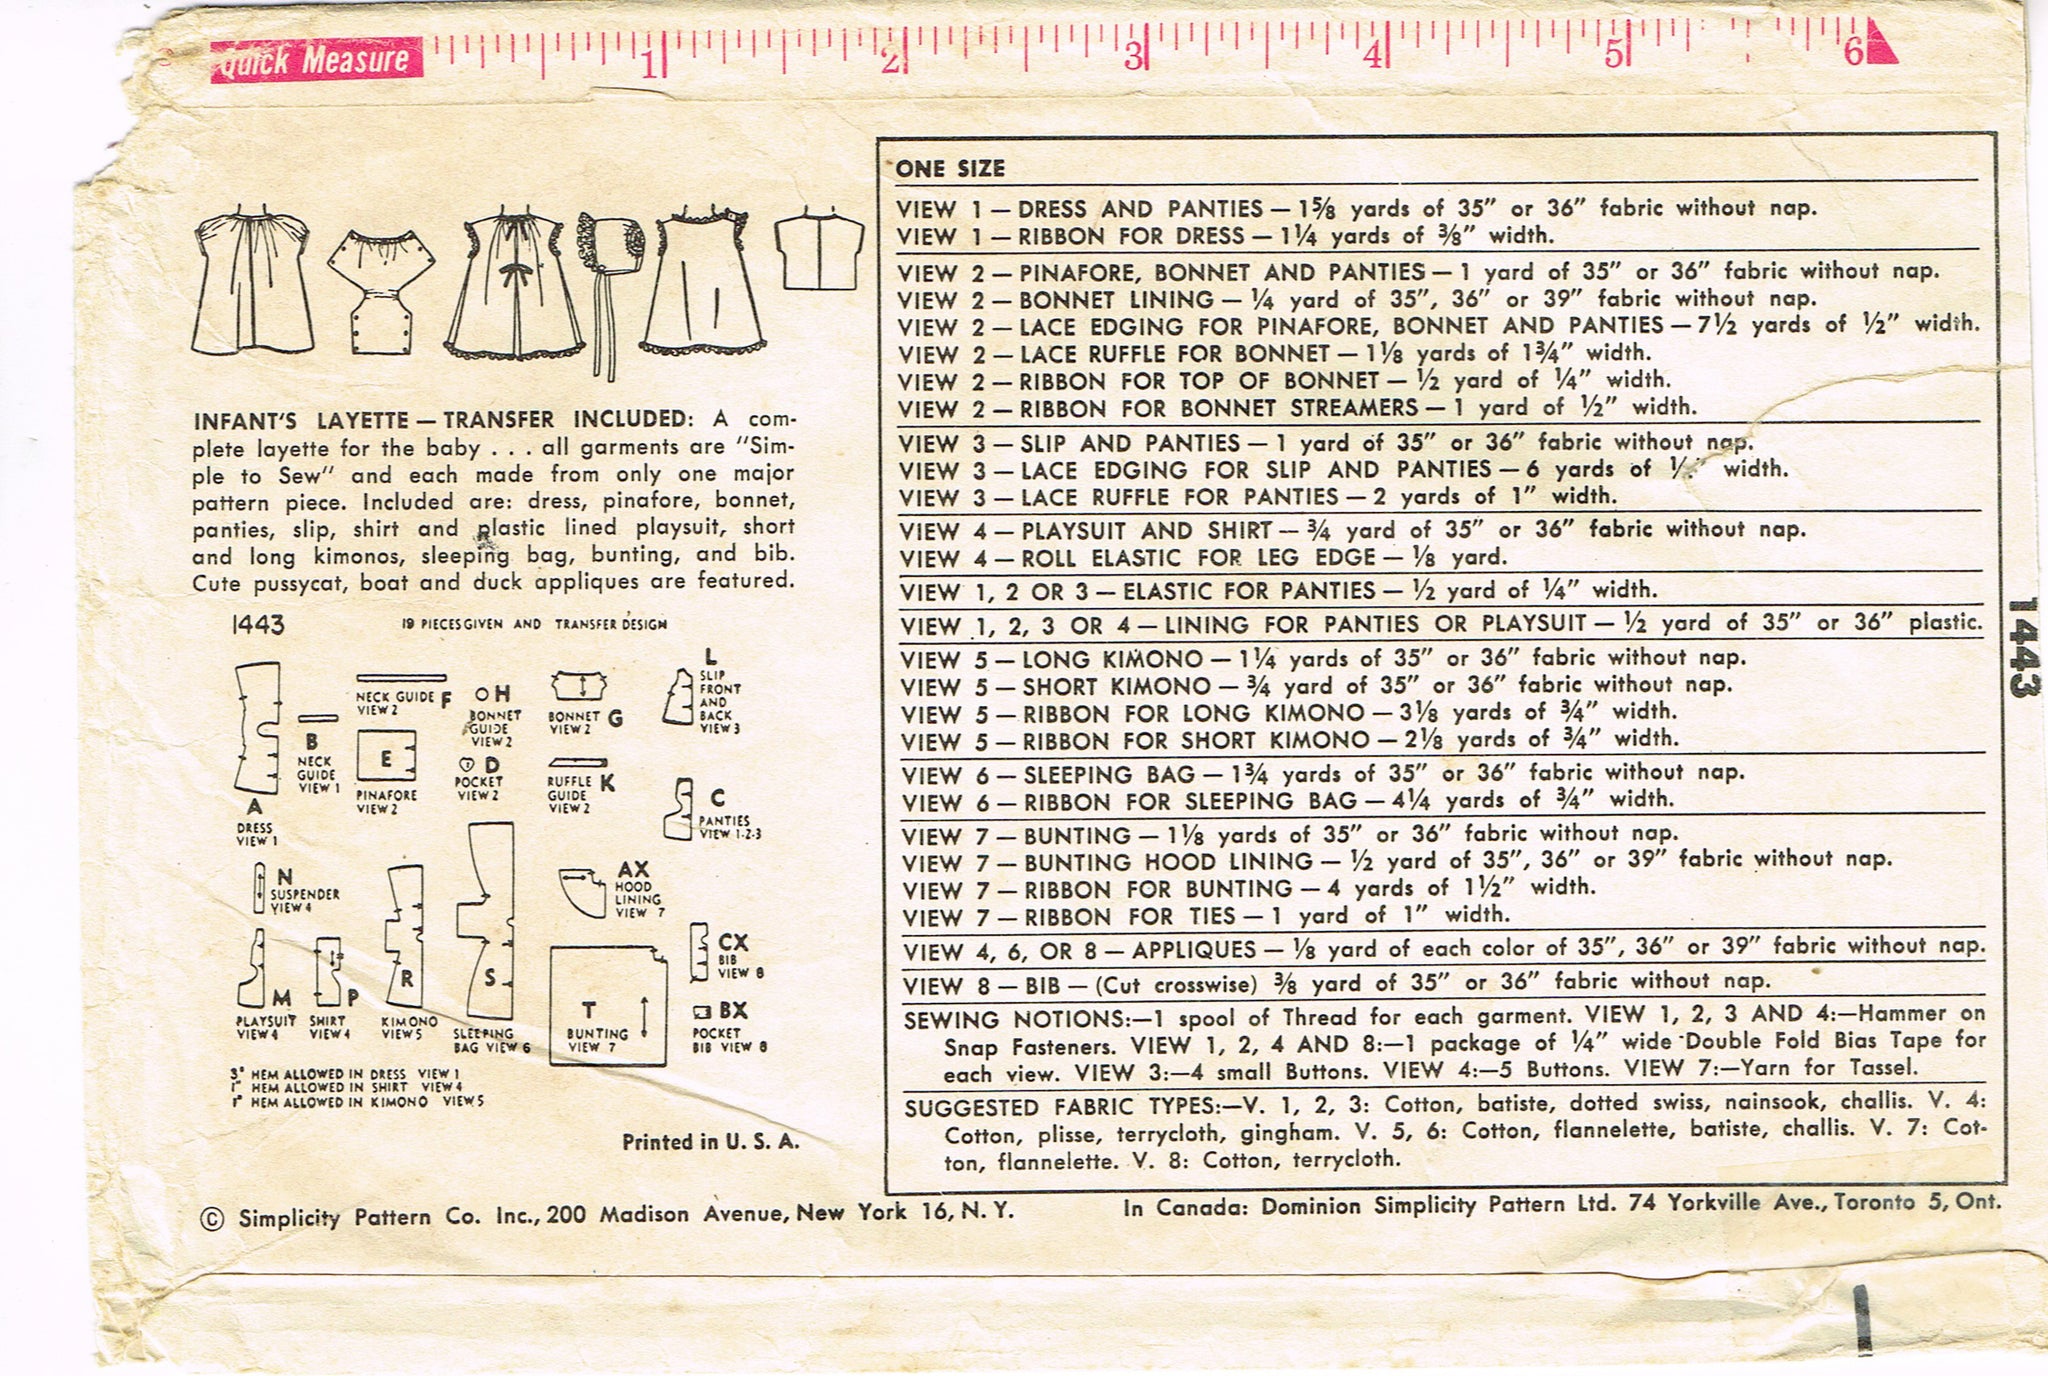 Quick Measure 1 2 3 4 5 6
INFANT'S LAYETTE — TRANSFER INCLUDED: A com-
plete layette for the baby . . . all garments are "Sim-
ple to Sew" and each made from only one major
pattern piece. Included are: dress, pinafore, bonnet,
panties, slip, shirt and plastic lined playsuit, short
and long kimonos, sleeping bag, bunting, and bib.
Cute pussycat, boat and duck appliques are featured.
1443
19 PIECES GIVEN AND TRANSFER DESIGN
A
DRESS
VIEW 1
B
NECK
GUIDE
VIEW 1
NECK GUIDE F
VIEW 2
E
PINAFORE
VIEW 2
H
BONNET
GUIDE
VIEW 2
D
POCKET
VIEW 2
BONNET G
VIEW 2
RUFFLE K
GUIDE
VIEW 2
L
SLIP
FRONT
AND
BACK
VIEW 3
C
PANTIES
VIEW 1-2-3
N
SUSPENDER
VIEW 4
M
PLAYSUIT
VIEW 4
P
SHIRT
VIEW 4
R
KIMONO
VIEW 5
S
SLEEPING
BAG VIEW 6
AX
HOOD
LINING
VIEW 7
T
BUNTING
VIEW 7
CX
BIB
VIEW 8
BX
POCKET
BIB VIEW 8
3" HEM ALLOWED IN DRESS VIEW 1
1" HEM ALLOWED IN SHIRT VIEW 4
1" HEM ALLOWED IN KIMONO VIEW 5
Printed in U. S. A.
ONE SIZE
VIEW 1 — DRESS AND PANTIES — 1⅝ yards of 35" or 36" fabric without nap.
VIEW 1 — RIBBON FOR DRESS — 1¼ yards of ⅜" width.
VIEW 2 — PINAFORE, BONNET AND PANTIES — 1 yard of 35" or 36" fabric without nap.
VIEW 2 — BONNET LINING — ¼ yard of 35", 36" or 39" fabric without nap.
VIEW 2 — LACE EDGING FOR PINAFORE, BONNET AND PANTIES — 7½ yards of ½" width.
VIEW 2 — LACE RUFFLE FOR BONNET — 1⅛ yards of 1¾" width.
VIEW 2 — RIBBON FOR TOP OF BONNET — ½ yard of ¼" width.
VIEW 2 — RIBBON FOR BONNET STREAMERS — 1 yard of ½" width.
VIEW 3 — SLIP AND PANTIES — 1 yard of 35" or 36" fabric without nap.
VIEW 3 — LACE EDGING FOR SLIP AND PANTIES — 6 yards of width.
VIEW 3 — LACE RUFFLE FOR PANTIES — 2 yards of 1" width.
VIEW 4 — PLAYSUIT AND SHIRT — ¾ yard of 35" or 36" fabric without nap.
VIEW 4 — ROLL ELASTIC FOR LEG EDGE — ⅛ yard.
VIEW 1, 2 OR 3 — ELASTIC FOR PANTIES — ½ yard of ¼" width.
VIEW 1, 2, 3 OR 4 — LINING FOR PANTIES OR PLAYSUIT — ½ yard of 35" or 36" plastic.
VIEW 5 — LONG KIMONO — 1¼ yards of 35" or 36" fabric without nap.
VIEW 5 — SHORT KIMONO — ¾ yard of 35" or 36" fabric without nap.
VIEW 5 — RIBBON FOR LONG KIMONO — 3⅛ yards of ¾" width.
VIEW 5 — RIBBON FOR SHORT KIMONO — 2⅛ yards of ¾" width.
VIEW 6 — SLEEPING BAG — 1¾ yards of 35" or 36" fabric without nap.
VIEW 6 — RIBBON FOR SLEEPING BAG — 4¼ yards of ¾" width.
VIEW 7 — BUNTING — 1⅛ yards of 35" or 36" fabric without nap.
VIEW 7 — BUNTING HOOD LINING — ½ yard of 35", 36" or 39" fabric without nap.
VIEW 7 — RIBBON FOR BUNTING — 4 yards of 1½" width.
VIEW 7 — RIBBON FOR TIES — 1 yard of 1" width.
VIEW 4, 6, OR 8 — APPLIQUES — ⅛ yard of each color of 35", 36" or 39" fabric without nap.
VIEW 8 — BIB — (Cut crosswise) ⅜ yard of 35" or 36" fabric without nap.
SEWING NOTIONS:—1 spool of Thread for each garment. VIEW 1, 2, 3 AND 4:—Hammer on
Snap Fasteners. VIEW 1, 2, 4 AND 8:—1 package of ¼" wide Double Fold Bias Tape for
each view. VIEW 3:—4 small Buttons. VIEW 4:—5 Buttons. VIEW 7:—Yarn for Tassel.
SUGGESTED FABRIC TYPES:—V. 1, 2, 3: Cotton, batiste, dotted swiss, nainsook, challis. V. 4:
Cotton, plisse, terrycloth, gingham. V. 5, 6: Cotton, flannelette, batiste, challis. V. 7: Cot-
ton, flannelette. V. 8: Cotton, terrycloth.
1443
© Simplicity Pattern Co. Inc., 200 Madison Avenue, New York 16, N. Y.
In Canada: Dominion Simplicity Pattern Ltd. 74 Yorkville Ave., Toronto 5, Ont.